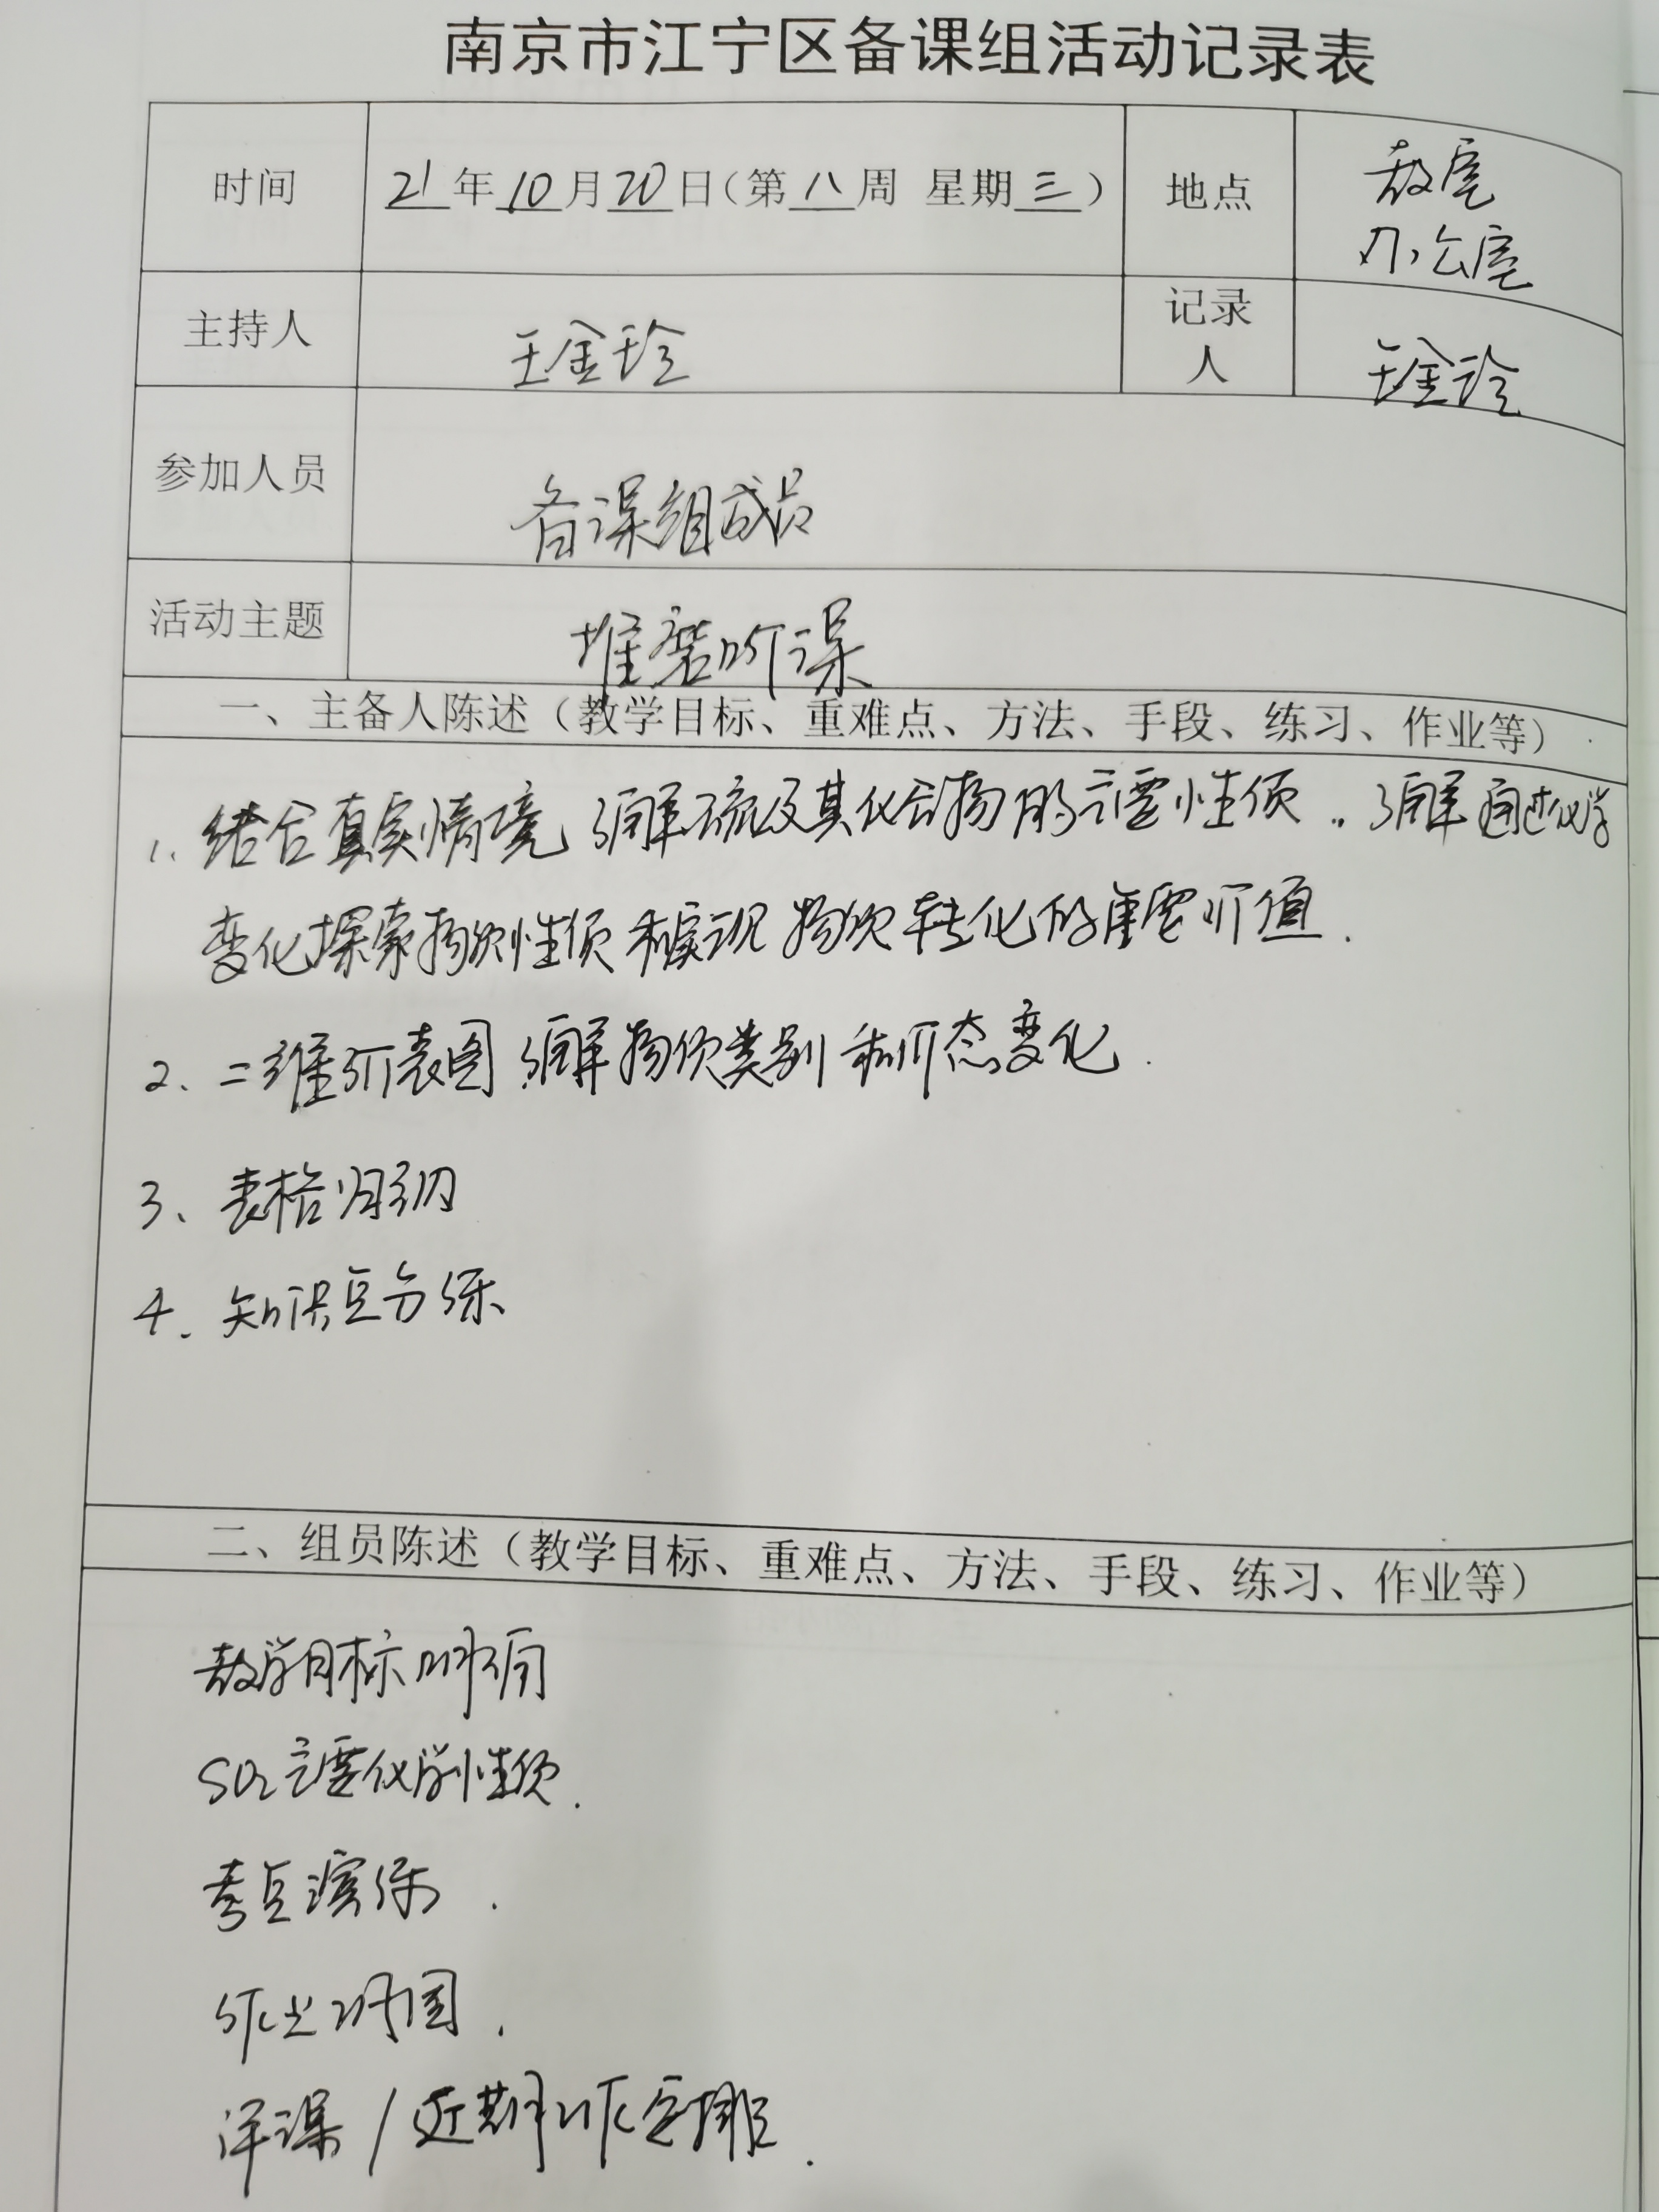 南京市江宁区备课组活动记录表
时间 21年10月20日(第八周 星期三) 地点 教室
办公室
主持人 王金玲 记录人 王金玲
参加人员 备课组成员
活动主题 推磨听课
一、主备人陈述（教学目标、重难点、方法、手段、练习、作业等）
1、结合真实情境 了解硫及其化合物的主要性质 .. 了解通过化学
变化探索物质性质和实现物质转化的重要价值.
2、二维价表图 了解物质类别和价态变化.
3、表格归纳
4、知识点分练
二、组员陈述（教学目标、重难点、方法、手段、练习、作业等）
教学目标明确
SO2主要化学性质.
考点演练.
作业巩固.
评课/近期工作安排.